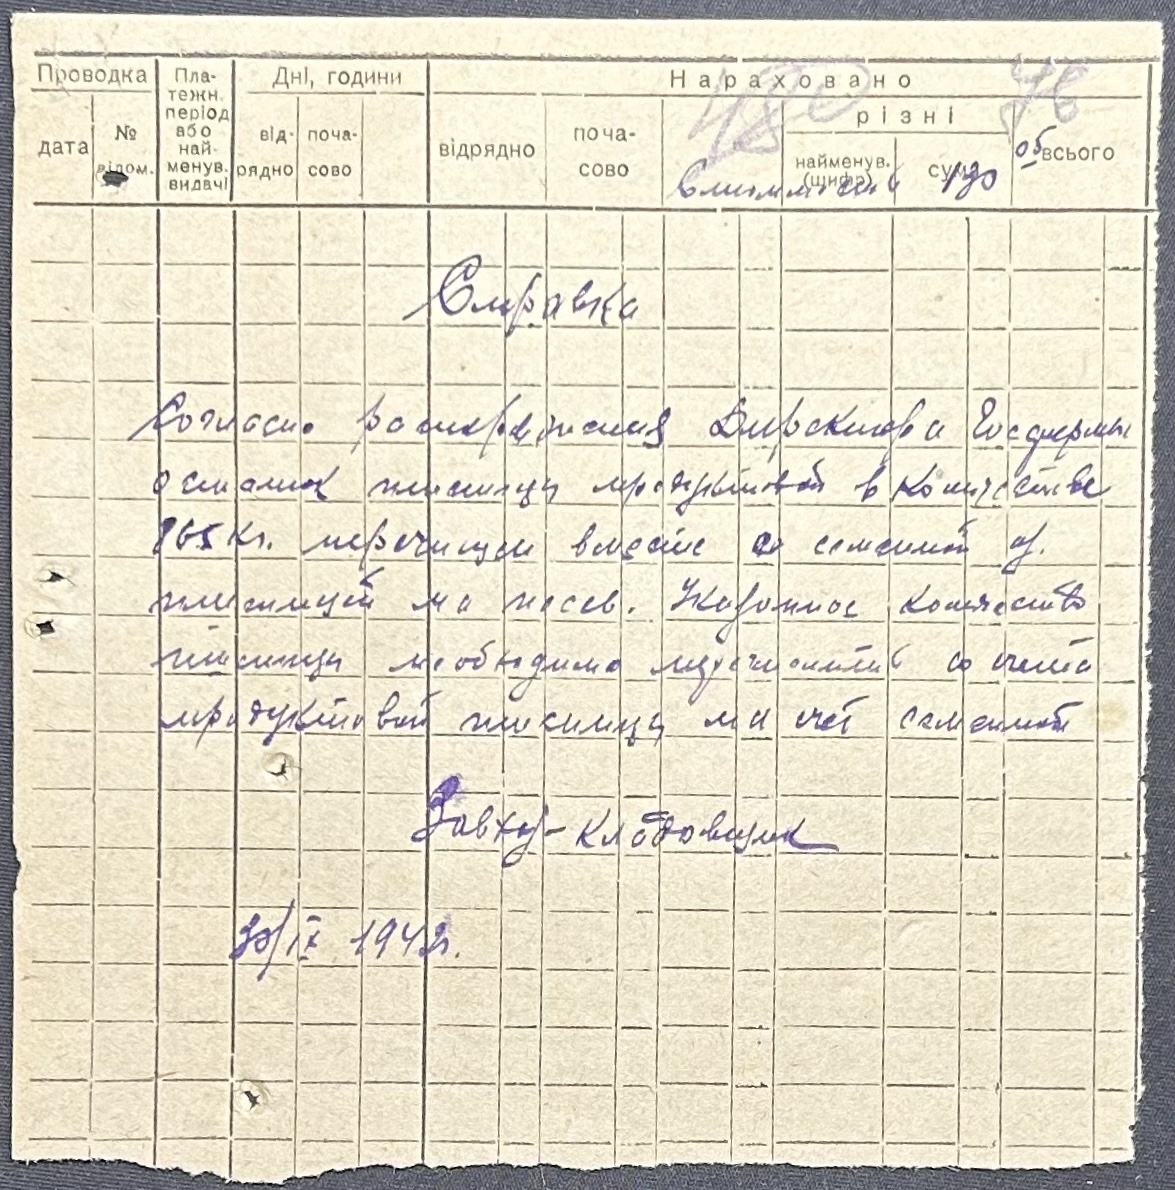 Проводка
Пла-
тежн.
період
або
най-
менув.
видачі
Дні, години
Нараховано
дата
№
відом.
від-
рядно
поча-
сово
відрядно
поча-
сово
різні
найменув.
(шифр)
сума
всього
480
76
об
190
Справка
Согласно распоряжения Директора Госфермы
остаток пшеницы продуктовой в количестве
865 кг. перечищен вместе со семенной
пшеницей на посев. Указанное количество
пшеницы необходимо перечислить со счета
продуктовой пшеницы на счет семенной
Завхоз-кладовщик
30/IX 1942г.